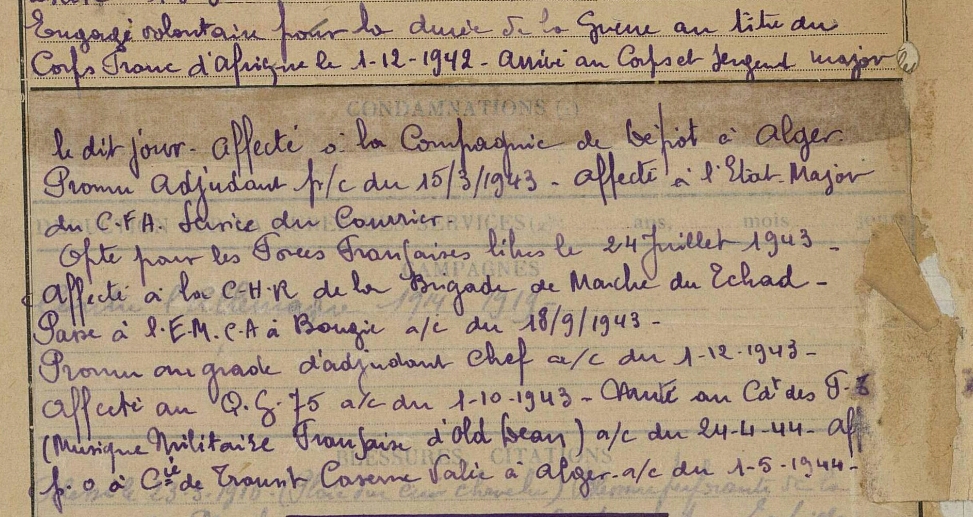 Engagé volontaire pour la durée de la Guerre au titre du
Corps Franc d'Afrique le 1-12-1942 - Arrivé au Corps et Sergent major
CONDAMNATIONS
le dit jour. Affecté à la Compagnie de Dépôt à Alger.
Promu Adjudant p/c du 15/3/1943 - Affecté à l'Etat-Major
du C.F.A. Service du Courrier.
SERVICES ans, mois
Opte pour les Forces Françaises libres le 24 Juillet 1943 -
CAMPAGNES
Affecté à la C.H.R de la Brigade de Marche du Tchad -
1914 1919
Passe à l'E.M.C.A à Bougie a/c du 18/9/1943 -
Promu au grade d'adjudant chef a/c du 1-12-1943 -
Affecté au Q.G. 75 a/c du 1-10-1943 - Muté au Cdt des T.
(Musique Militaire Française d'Old Dean) a/c du 24-4-44 - Aff
BLESSURES, CITATIONS
p.o à Cie de Transit Caserne Valée à Alger a/c du 1-5-1944 -